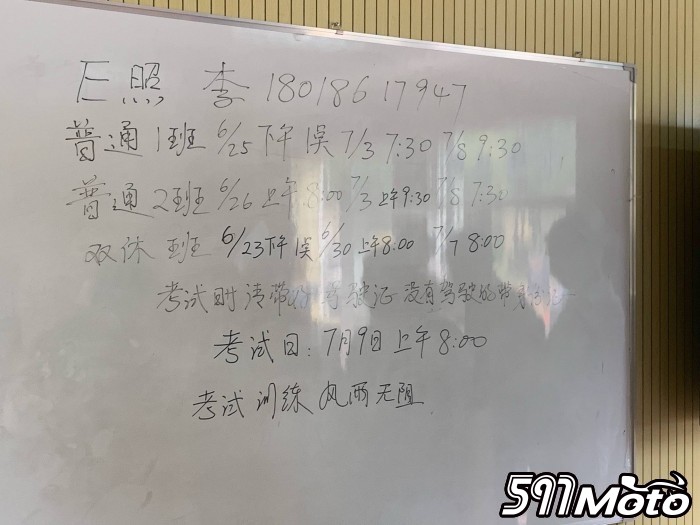 E照 李 18018617947
普通1班 6/25下午 误 7/3 7:30 7/8 9:30
普通2班 6/26上午8:00 7/3上午9:30 7/8 7:30
双休 班 6/23下午 误 6/30上午8:00 7/7 8:00
考试时请带好驾驶证 没有驾驶的带身份证
考试日: 7月9日上午8:00
考试训练 风雨无阻
597Moto